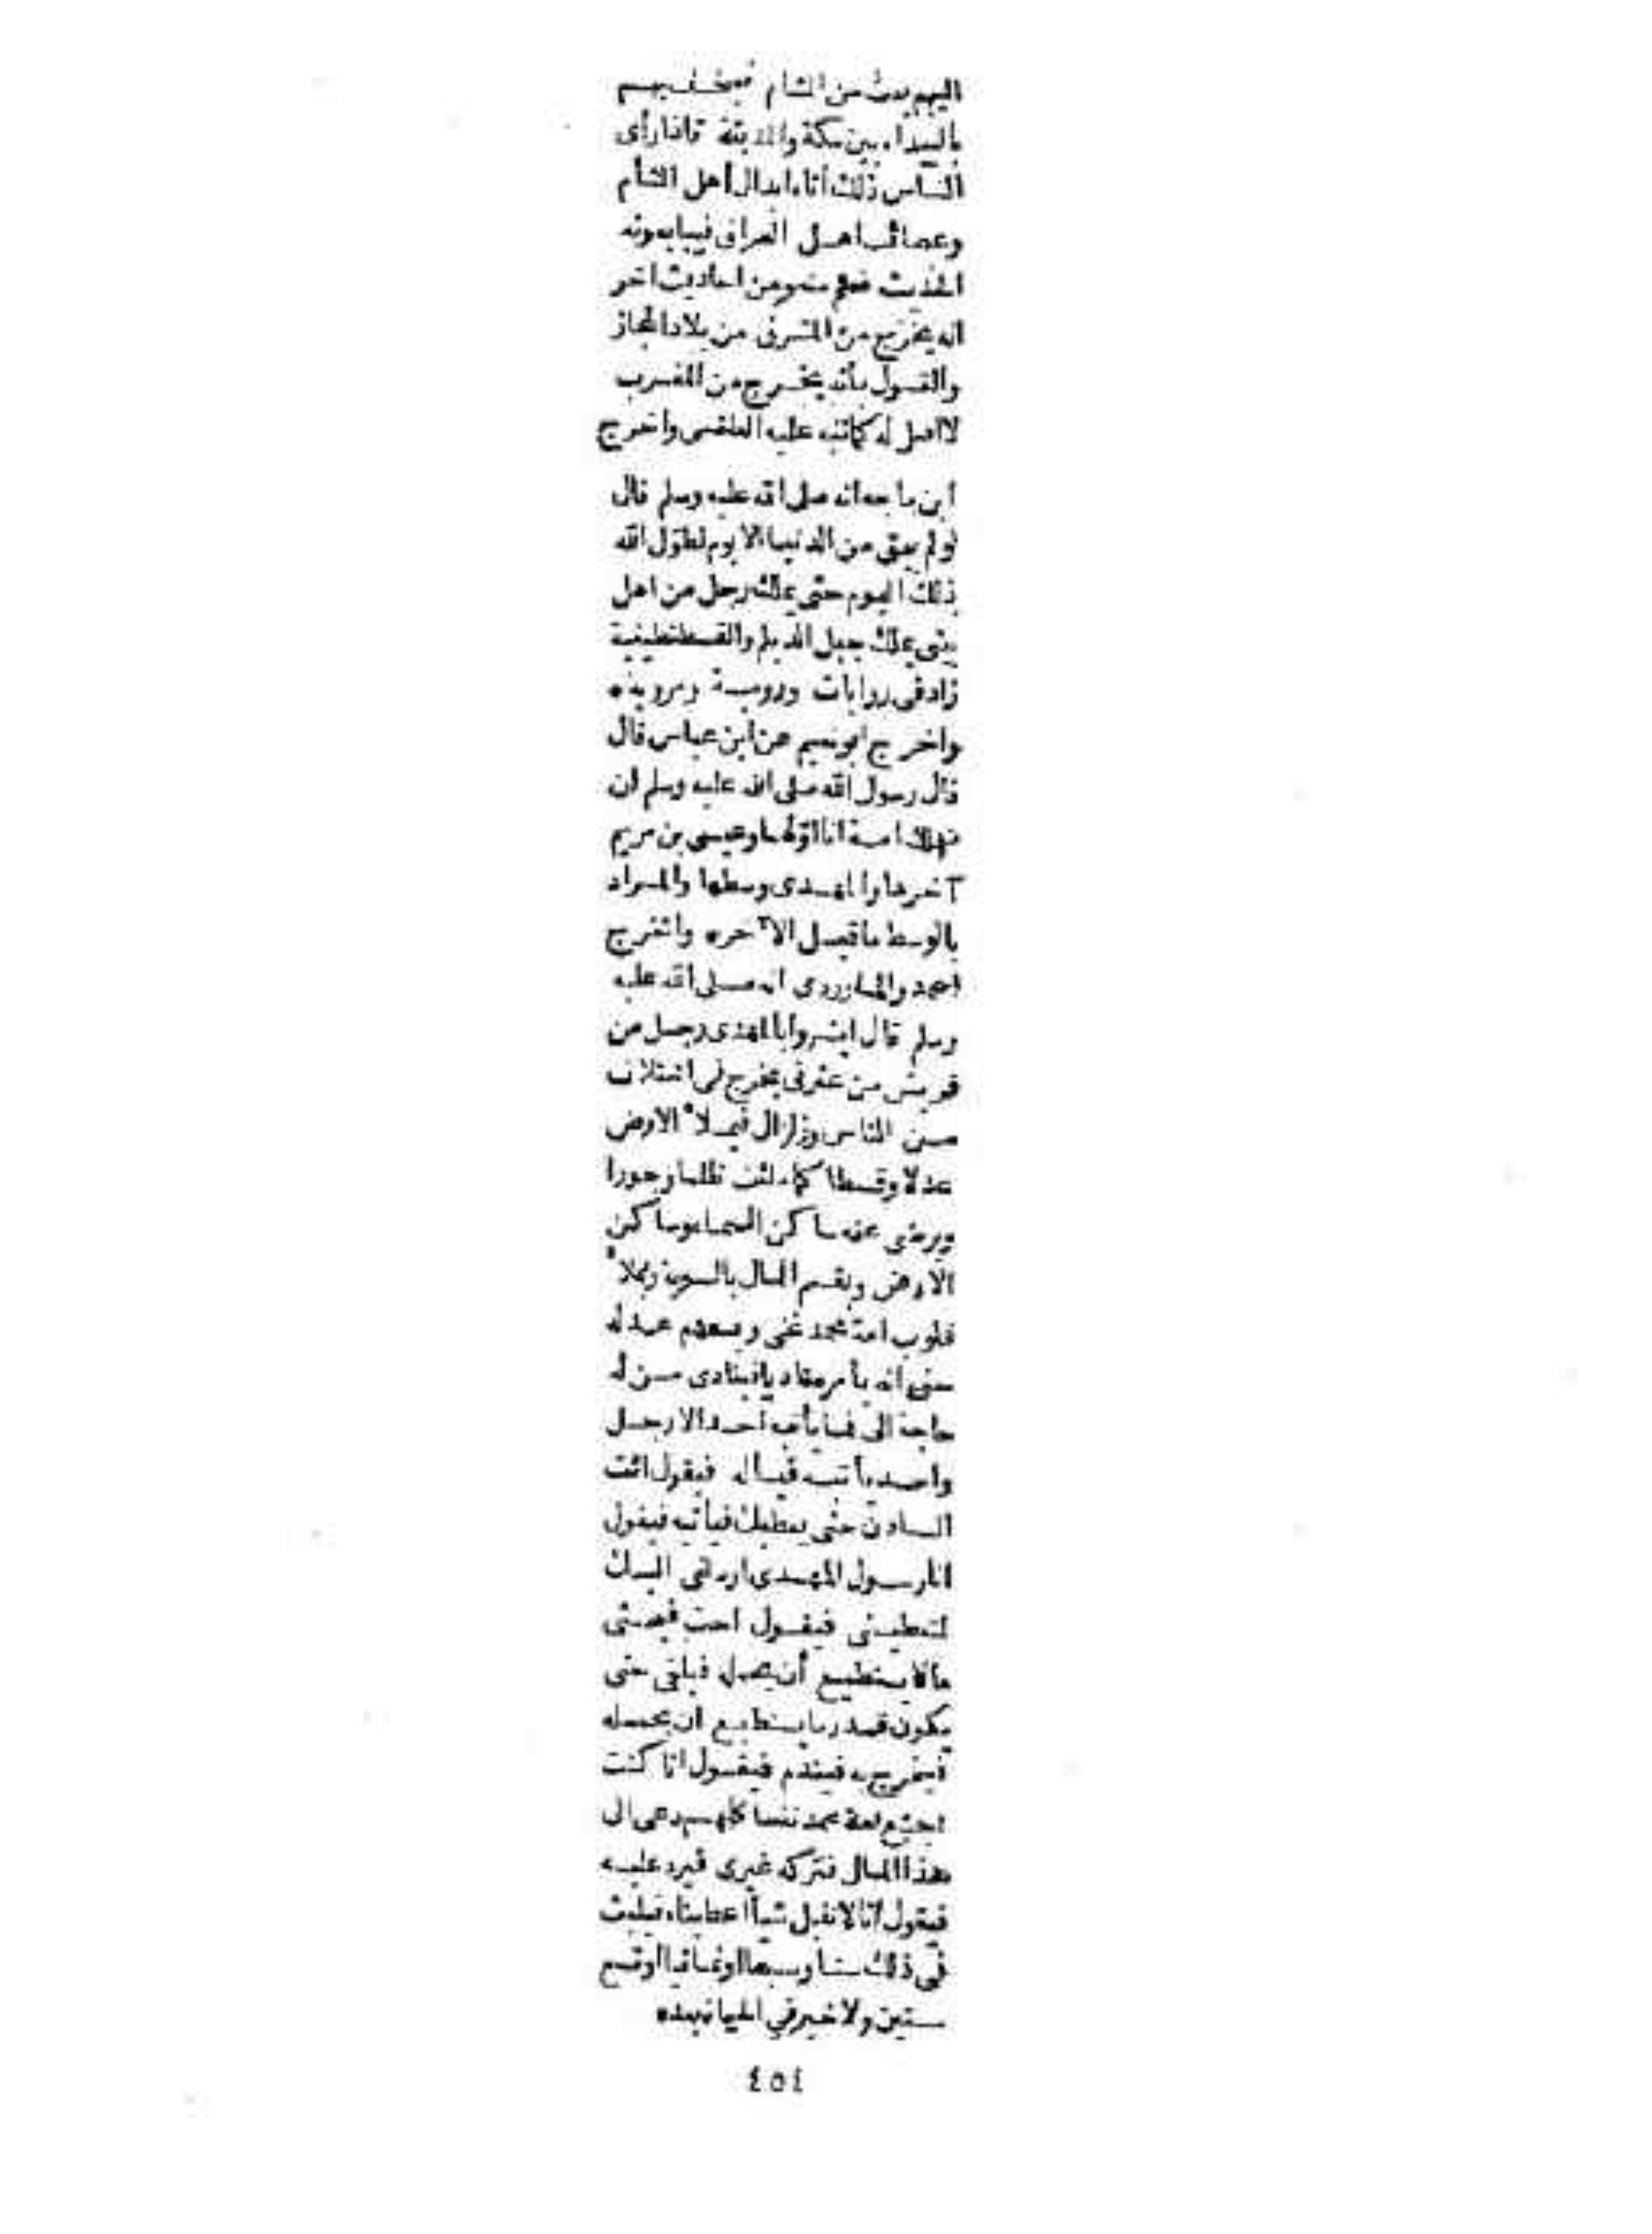 اليهم بعث من الشام فيخسف بهم
بالبيداء بين مكة والمدينة فاذا رأى
الناس ذلك أتاه ابدال أهل الشأم
وعصائب اهل العراق فيبايعونه
الحديث فعلم منه ومن احاديث اخر
انه يخرج من المشرق من بلاد الحجاز
والقول بأنه يخرج من المغرب
لا اصل له كما نبه عليه العلقمى واخرج
ابن ماجه انه صلى الله عليه وسلم قال
لو لم يبق من الدنيا الا يوم لطول الله
ذلك اليوم حتى يملك رجل من اهل
بيتى يملك جبل الديلم والقسطنطينية
زاد فى روايات ورومية
واخرج ابو نعيم عن ابن عباس قال
قال رسول الله صلى الله عليه وسلم لن
تهلك امة انا اولها وعيسى بن مريم
آخرها والمهدى وسطها والمراد
بالوسط ما قبل الآخر ه واخرج
احمد والماوردى انه صلى الله عليه
وسلم قال ابشروا بالمهدى رجل من
قريش من عترتى يخرج فى اختلاف
من الناس وزلزال فيملأ الارض
عدلا وقسطا كما ملئت ظلما وجورا
ويرضى عنه ساكن السماء وساكن
الارض ويقسم المال بالسوية ويملأ
قلوب امة محمد غنى ويسعهم عدله
حتى انه يأمر مناديا فينادى من له
حاجة الى فما يأتيه أحد الا رجل
واحد يأتيه فيسأله فيقول ائت
السادن حتى يعطيك فيأتيه فيقول
انا رسول المهدى ارسلنى اليك
لتعطينى فيقول احث فيحثى
مالا يستطيع أن يحمله فيلقى حتى
يكون قدر ما يستطيع ان يحمله
فيخرج به فيندم فيقول انا كنت
اجشع امة محمد نفسا كلهم دعى الى
هذا المال فتركه غيرى فيرد عليه
فيقول انا لا نقبل شيأ اعطيناه فيلبث
فى ذلك ستا او سبعا او ثمانيا او تسع
سنين ولا خير في الحياة بعده
٤٥٤